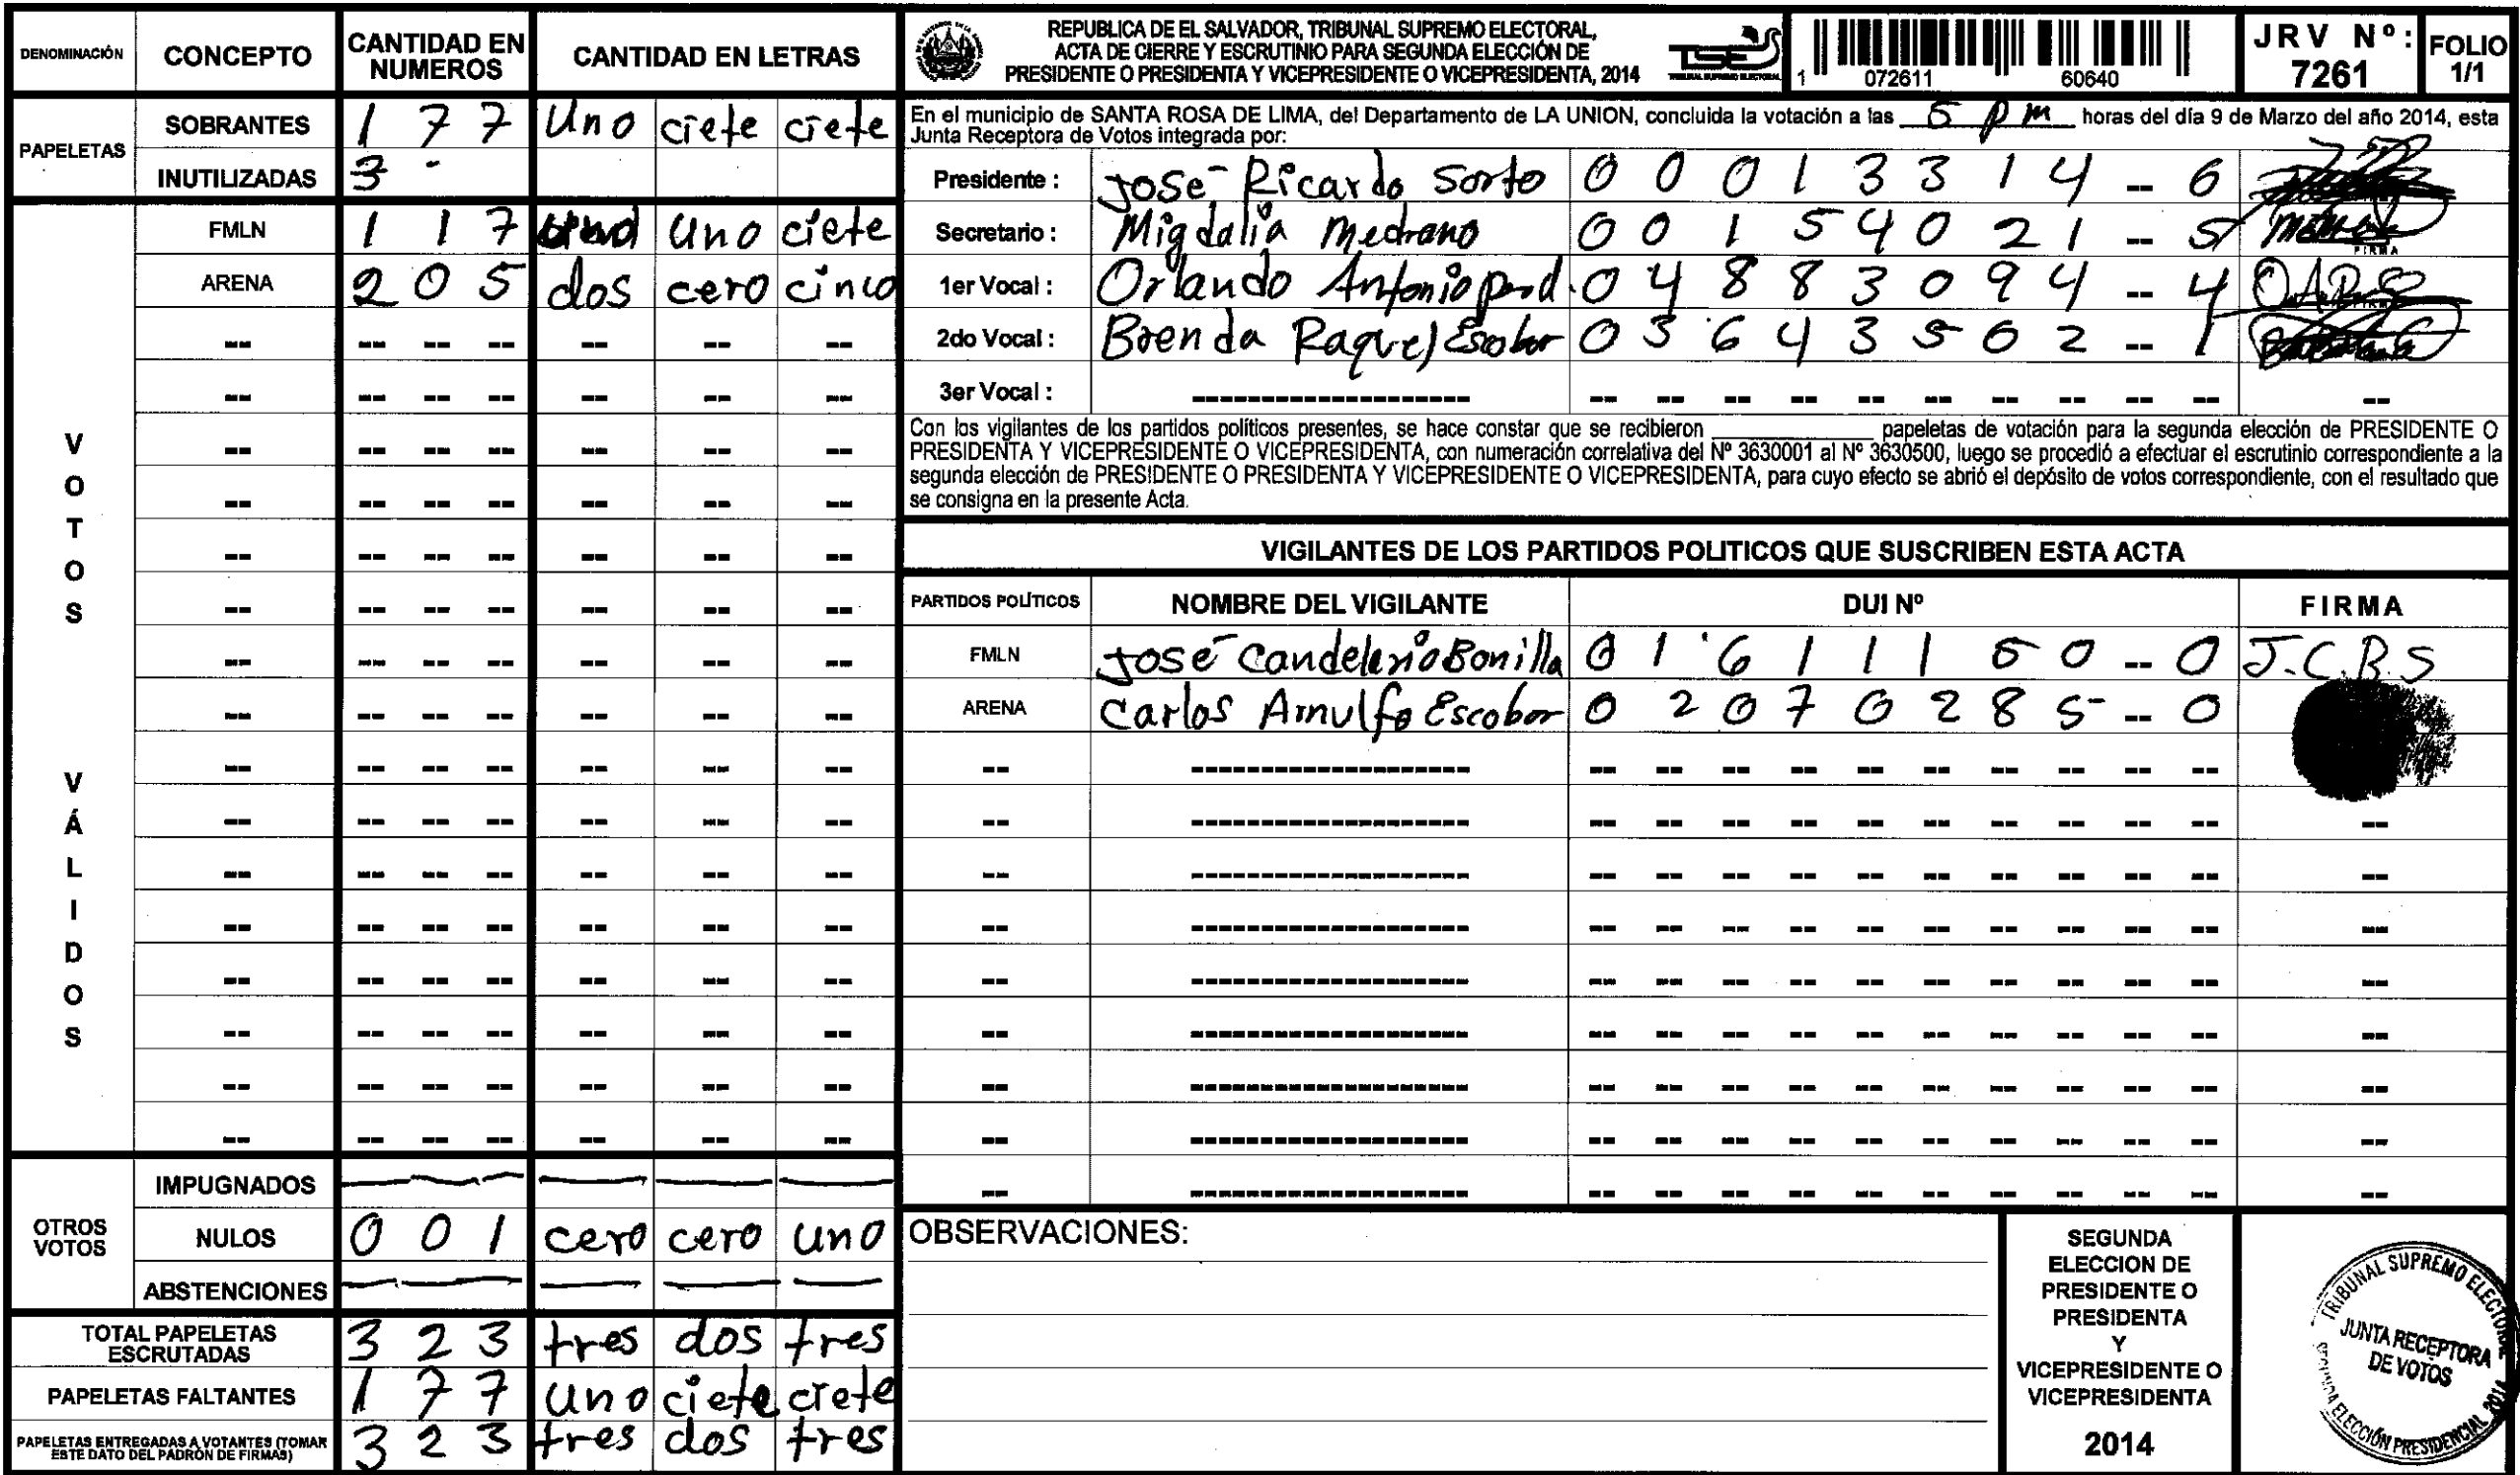 DENOMINACIÓN CONCEPTO CANTIDAD EN NUMEROS CANTIDAD EN LETRAS
PAPELETAS
SOBRANTES 1 7 7 Uno ciete ciete
INUTILIZADAS 3 -
VOTOS VÁLIDOS
FMLN 1 1 7 uno uno ciete
ARENA 2 0 5 dos cero cinco
OTROS VOTOS
IMPUGNADOS
NULOS 0 0 1 cero cero uno
ABSTENCIONES
TOTAL PAPELETAS ESCRUTADAS 3 2 3 tres dos tres
PAPELETAS FALTANTES 1 7 7 uno ciete ciete
PAPELETAS ENTREGADAS A VOTANTES (TOMAR ESTE DATO DEL PADRÓN DE FIRMAS) 3 2 3 tres dos tres
REPUBLICA DE EL SALVADOR, TRIBUNAL SUPREMO ELECTORAL,
ACTA DE CIERRE Y ESCRUTINIO PARA SEGUNDA ELECCIÓN DE
PRESIDENTE O PRESIDENTA Y VICEPRESIDENTE O VICEPRESIDENTA, 2014
TSE
TRIBUNAL SUPREMO ELECTORAL
1 072611 60640
JRV Nº: 7261
FOLIO 1/1
En el municipio de SANTA ROSA DE LIMA, del Departamento de LA UNION, concluida la votación a las 5 pm horas del día 9 de Marzo del año 2014, esta
Junta Receptora de Votos integrada por:
Presidente : José Ricardo Sorto 0 0 0 1 3 3 1 4 -- 6
Secretario : Migdalia Medrano 0 0 1 5 4 0 2 1 -- 5
FIRMA
1er Vocal : Orlando Antonio 0 4 8 8 3 0 9 4 -- 4
2do Vocal : Brenda Raquel Escobar 0 3 6 4 3 5 6 2 -- 1
3er Vocal :
Con los vigilantes de los partidos políticos presentes, se hace constar que se recibieron ____________ papeletas de votación para la segunda elección de PRESIDENTE O
PRESIDENTA Y VICEPRESIDENTE O VICEPRESIDENTA, con numeración correlativa del Nº 3630001 al Nº 3630500, luego se procedió a efectuar el escrutinio correspondiente a la
segunda elección de PRESIDENTE O PRESIDENTA Y VICEPRESIDENTE O VICEPRESIDENTA, para cuyo efecto se abrió el depósito de votos correspondiente, con el resultado que
se consigna en la presente Acta.
VIGILANTES DE LOS PARTIDOS POLITICOS QUE SUSCRIBEN ESTA ACTA
PARTIDOS POLÍTICOS NOMBRE DEL VIGILANTE DUI Nº FIRMA
FMLN José Candelerio Bonilla 0 1 6 1 1 1 5 0 -- 0 J.C.B.S
ARENA Carlos Arnulfo Escobar 0 2 0 7 0 2 8 5 -- 0
OBSERVACIONES:
SEGUNDA
ELECCION DE
PRESIDENTE O
PRESIDENTA
Y
VICEPRESIDENTE O
VICEPRESIDENTA
2014
TRIBUNAL SUPREMO ELECTORAL
JUNTA RECEPTORA
DE VOTOS
SEGUNDA ELECCIÓN PRESIDENCIAL 2014